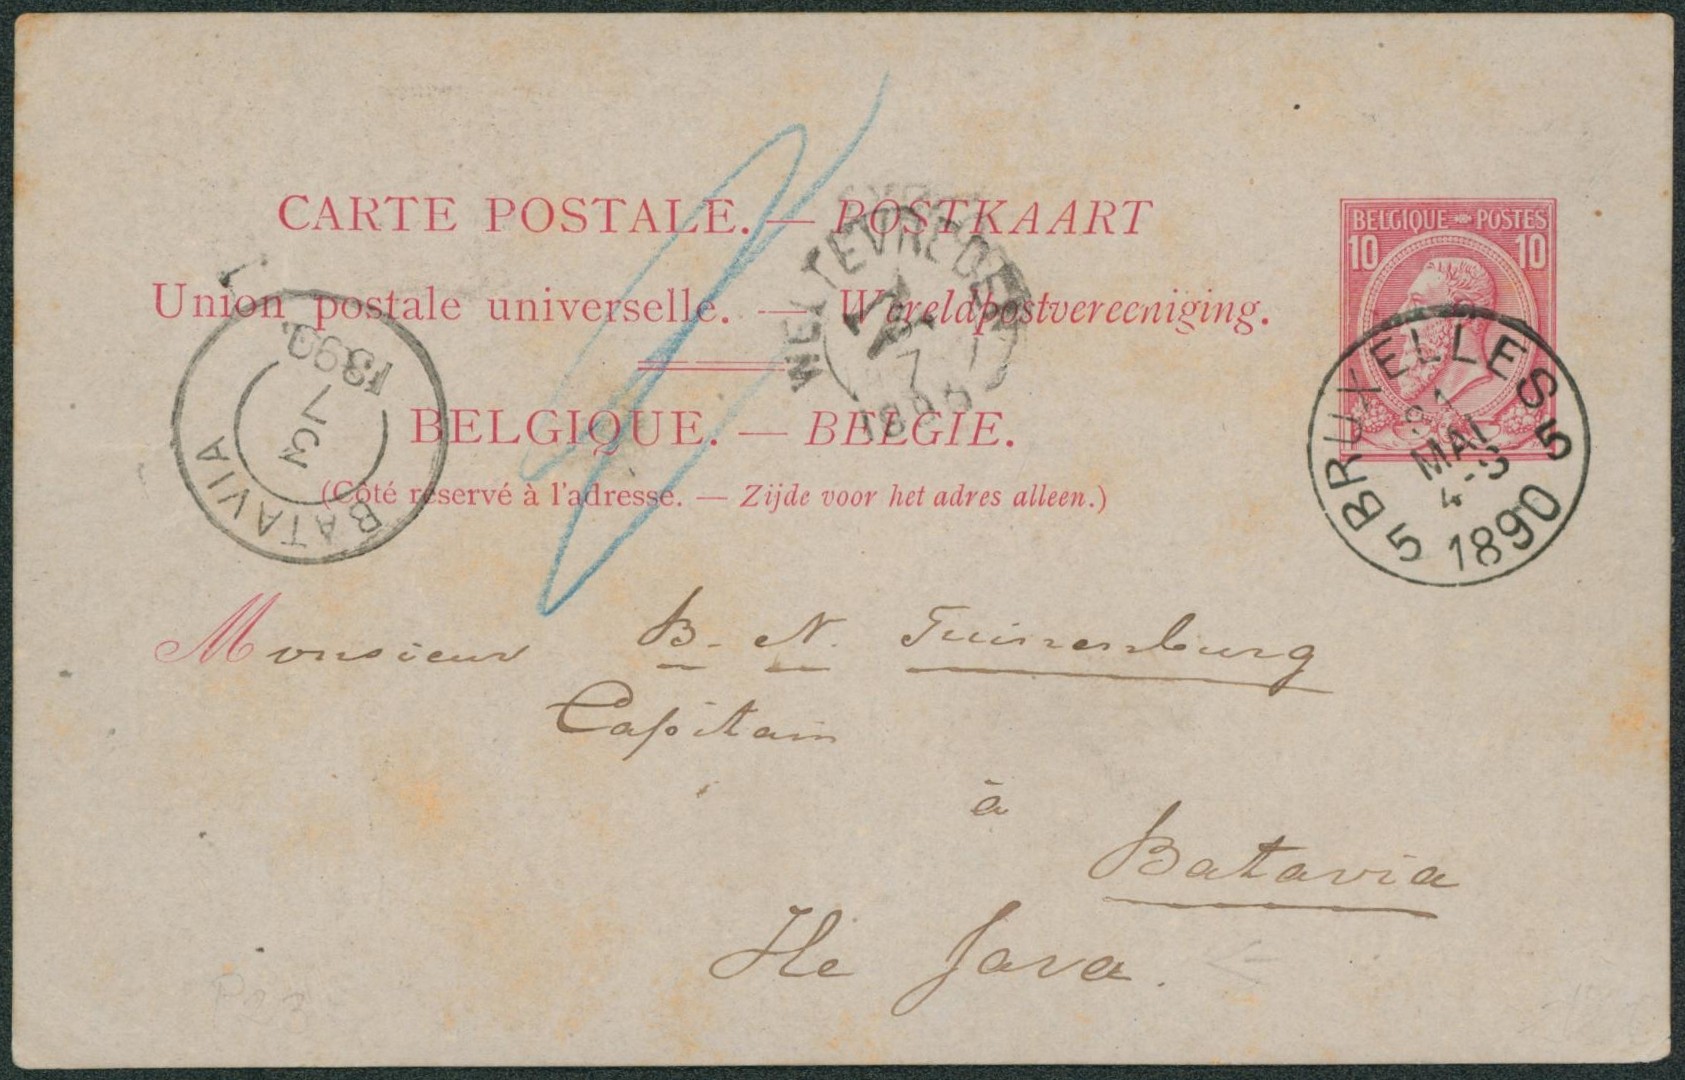 CARTE POSTALE. — POSTKAART
Union postale universelle. — Wereldpostvereeniging.
BELGIQUE. — BELGIE.
(Côté réservé à l'adresse. — Zijde voor het adres alleen.)
BELGIQUE POSTES
10 10
BRUXELLES
MAI
4-S
5 1890 5
WELTEVREDEN
7
BATAVIA
3 7
1890.
BATAVIA
Monsieur B. N. Tuinenburg
Capitain
à
Batavia
Ile Java.